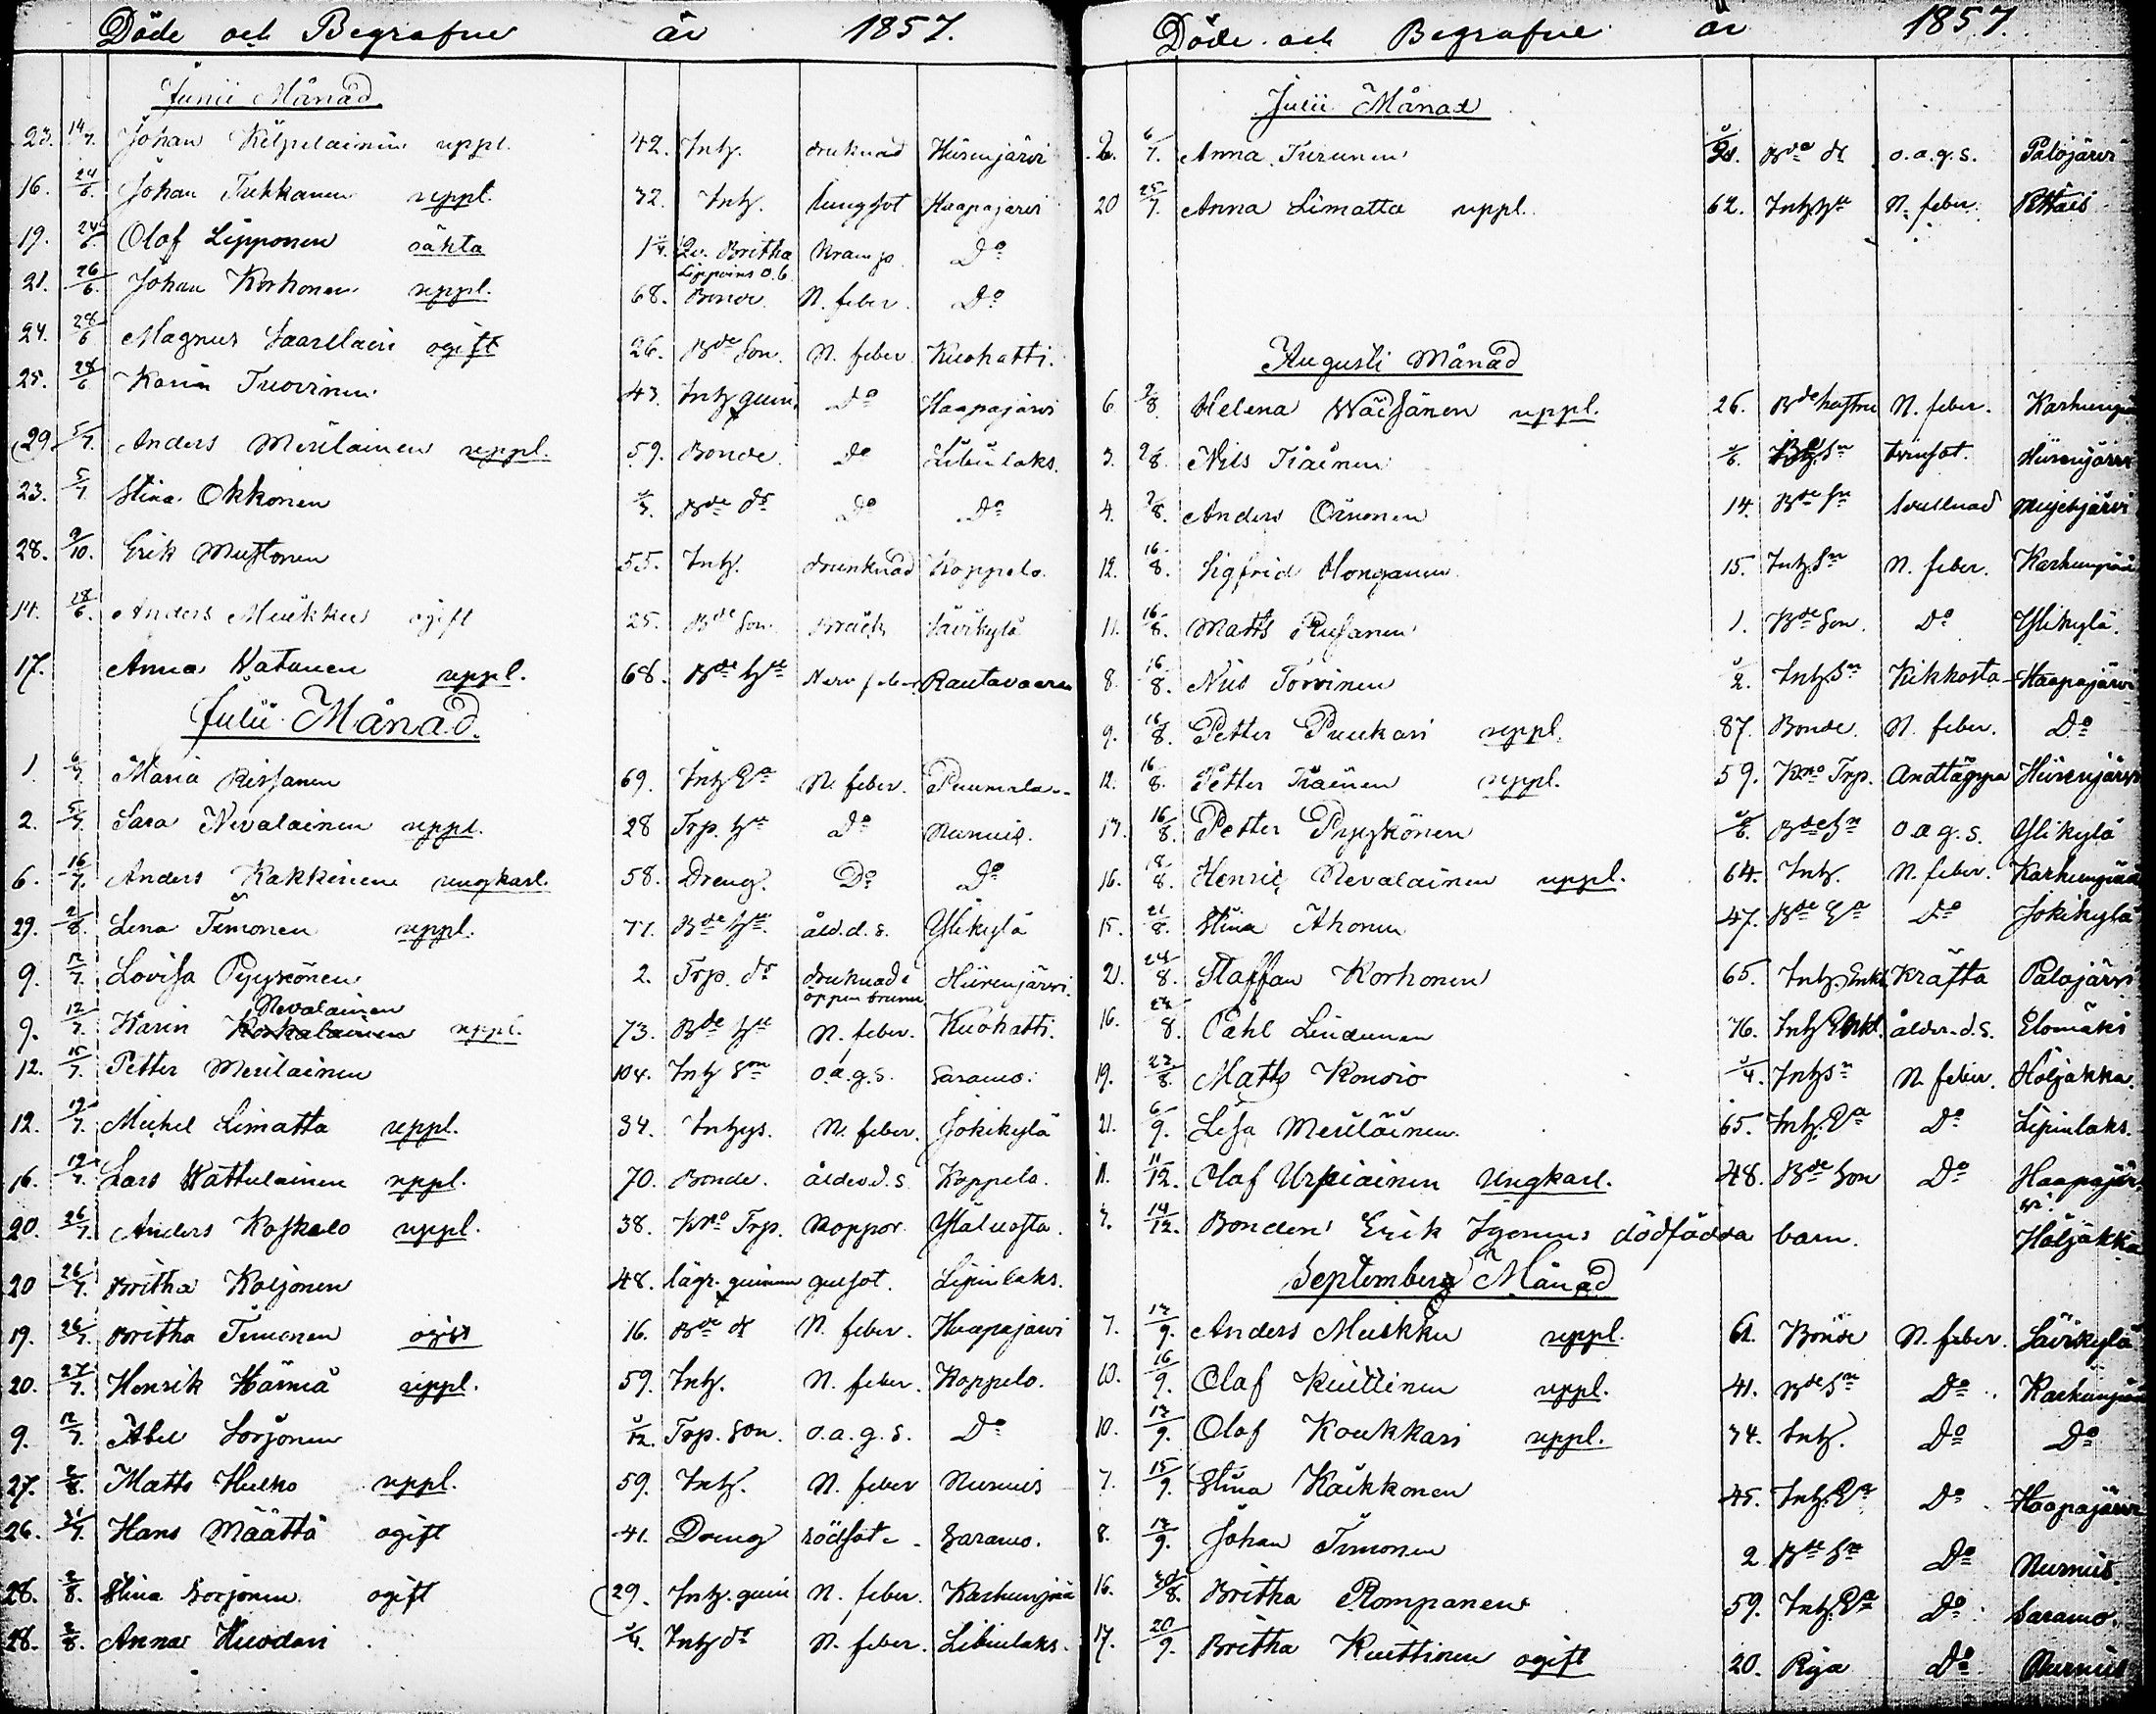 Döde och Begrafne år 1857.
Junii Månad
23. 14/7. Johan Kilpelainen uppl. 42. Inh. druknad Hiirenjärvi
16. 24/6. Johan Tukkanen uppl. 32. Inh. lungsot Haapajärvi
19. 24/6. Olof Lipponen oäkta 1 1/4. Qv. Britha Kramp Do
Lippoins o.b.
21. 26/6. Johan Korhonen uppl. 68. Bonde N. feber. Do
24. 28/6 Magnus Saarelain ogift 26. Bde Son. N. feber Kuohatti.
25. 28/6 Karin Tuovinen 43. Inh quin. Do Haapajärvi
29. 5/7. Anders Meriläinen uppl. 59. Bonde. Do Libinlaks.
23. 5/7. Stina Okkonen 3/. Bde dr Do Do
28. 9/10. Erik Mustonen 55. Inh. drunknad Koppelo.
14. 28/6. Anders Muikku ogift 25. Bde Son. Bråck Savikylä
17. Anna Watanen uppl. 68. Bde hu Nerv feber Rautavaara
Julii Månad.
1. 6/7 Maria Rissanen 69. Inh Ea N. feber. Puumala
2. 5/7. Sara Nevalainen uppl. 28 Trp. hu Do Nurmis.
6. 16/7. Anders Kakkinen ungkarl. 58. Dreng. Do Do
29. 2/8. Lena Timonen uppl. 77. Bde hu. åld.d.s. Ylikylä
9. 12/7. Lovisa Pyykönen 2. Trp. dr druknad i Hiirenjärvi.
öppen brunn
Nevalainen
9. 12/7. Karin uppl. 73. Bde hu N. feber. Kuohatti.
12. 15/7. Petter Meriläinen 104. Inh Son o.a.g.s. Saramo.
12. 19/7. Michel Limatta uppl. 34. Inhys. N. feber. Jokikylä
16. 19/7. Lars Wattulainen uppl. 70. Bonde. ålder.d.s. Koppelo.
20. 26/7. Anders Koskelo uppl. 38. Kro Trp. Koppor
20 26/7. Britha Koljonen 48. lägr. quinna gulsot. Lipinlaks.
19. 26/7. Britha Timonen ogift 16. Bde dr N. feber. Haapajärvi
20. 27/7. Henrik Härmä uppl. 59. Inh. N. feber. Koppelo.
9. 12/7. Abel Sorjonen 3/12. Trp. Son. o.a.g.s. Do
27. 2/8. Matts Hulko uppl. 59. Inh. N. feber Nurmis
26. 31/7. Hans Määttä ogift 41. Dreng rödsot Saramo.
28. 2/8. Stina Sorjonen ogift 29. Inh. quin N. feber. Karhunpää
28. 2/8. Anna Huodari 3/4. Inh dr N. feber. Libinlaks.
Döde och Begrafne år 1857.
Julii Månad
2. 6/7. Anna Turunen Bde dr o.a.g.s. Palojärvi
20 25/7. Anna Limatta uppl. 62. Inh hu N. feber.
Augusti Månad
6. 2/8. Helena Wäisänen uppl. 26. Bde hustru N. feber. Karhunpää
3. 2/8. Nils Tiainen Sn tvinsot. Hiirenjärvi
4. 2/8. Anders Oinonen 14. Bde Sn Mujejärvi
12. 16/8. Sigfrid Honganen 15. Inh. Sn N. feber. Karhunpää
11. 16/8. Matts Rusanen 1. Bde Son. Do Ylikylä.
8. 16/8. Nils Torvinen 3/2. Inh. Sn Kikhosta Haapajärvi
9. 16/8. Petter Puukari uppl. 87. Bonde. N. feber. Do
12. 16/8. Petter Tiainen uppl. 59. Kro Trp. Andtäppa Hiirenjärvi
13. 16/8. Petter Pyykönen Bde Sn o.a.g.s. Ylikylä
16. 18/8. Henric Nevalainen uppl. 64. Inh. N. feber. Karhunpää
15. 21/8. Stina Ahonen 47. Bde Ea Do Jokikylä
21. 24/8. Staffan Korhonen 65. Inh. Enkl. Kräfta Palojärvi
16. 24/8. Påhl Lindunen 76. Inh Enkl. ålder.d.s. Elomäki
19. 23/8. Matts Kononen 3/4. Inh Sn N. feber. Höljäkkä.
21. 6/9. Lisa Meriläinen. 65. Inh. Ea Do Lipinlaks.
11. 11/12. Olof Urpiainen Ungkarl. 48. Bde Son Do Haapajär-
vi.
3. 14/12. Bonden Erik dödfödda barn. Höljäkkä
September Månad
7. 13/9. Anders Muikku uppl. 61. Bonde N. feber. Savikylä
10. 16/9. Olof Kuittinen uppl. 41. Bde Sn Do Karhunpää
10. 13/9. Olof Koukkari uppl. 34. Inh. Do Do
7. 15/9. Stina Kaikkonen 45. Inh. Ea Do Haapajärvi
8. 13/9. Johan Timonen 2 Bde Sn Do Nurmis.
16. 30/8. Britha Rompanen 59. Inh. Ea Do Saramo.
17. 20/9. Britha Kuittinen ogift 20. Piga Do Nurmis